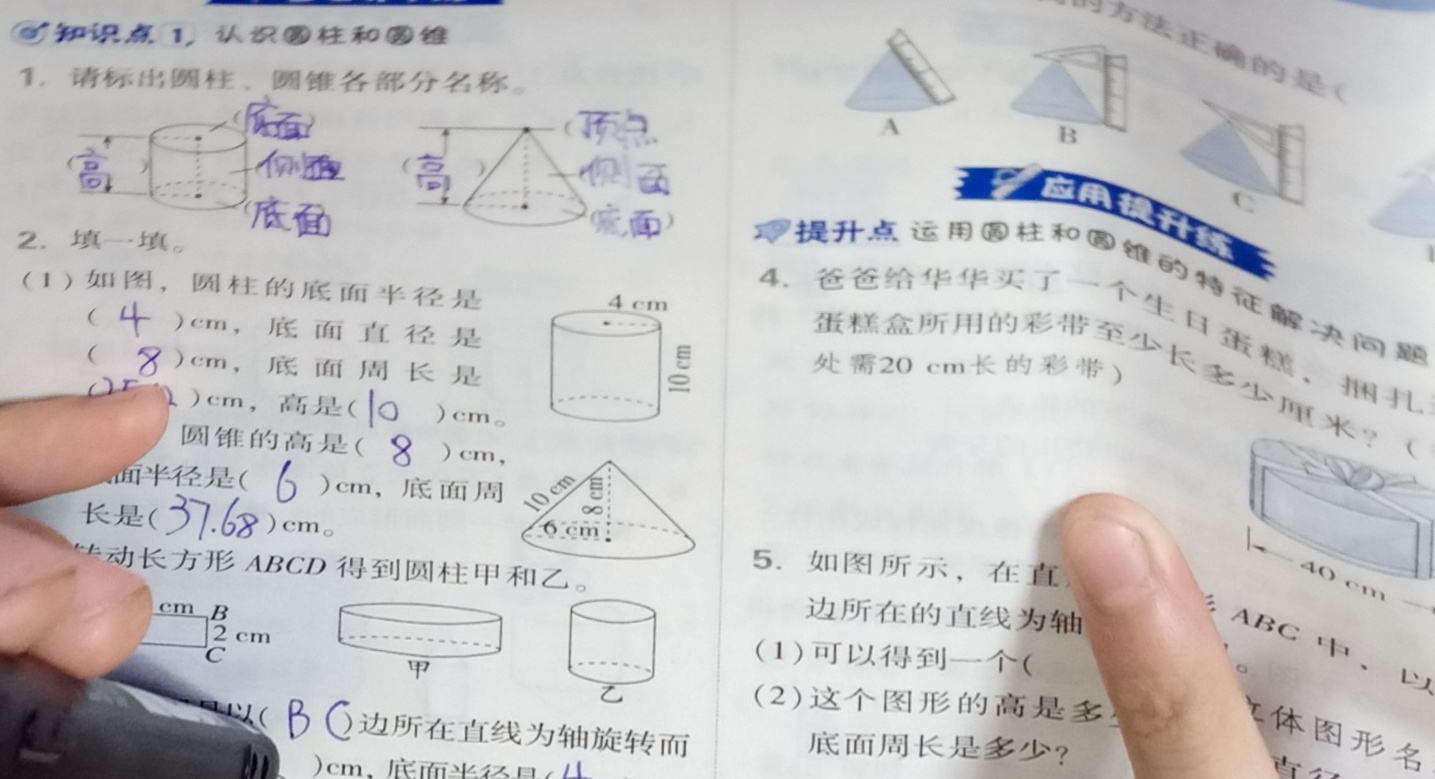 知识点1，认识圆柱和圆锥
1. 请标出圆柱、圆锥各部分名称。
(底面)
(高)
侧面
底面
(顶点
(高)
侧面
(底面)
2. 填一填。
(1)如图，圆柱的底面半径是
( 4 )cm，底面直径是
( 8 )cm，底面周长是
)cm，高是(10 )cm。
4 cm
10 cm
圆锥的高是( 8 )cm，
面半径是( 6 )cm，底面周
长是(37.68)cm。
10 cm
8 cm
6 cm
动长方形 ABCD 得到圆柱甲和乙。
cm B
2 cm
C
甲
乙
以( BC )边所在直线为轴旋转而
)cm，底面半径是( 4
的方法正确的是(
A
B
C
应用提升练
提升点 运用圆柱和圆锥的特征解决问题
4. 爸爸给华华买了一个生日蛋糕，捆扎
蛋糕盒所用的彩带至少长多少厘米？(
处需20 cm长的彩带)
40 cm
5. 如图所示，在直
ABC 中，以
边所在的直线为轴
(1)可以得到一个(
。
(2)这个图形的高是多
立体图形名
底面周长是多少？